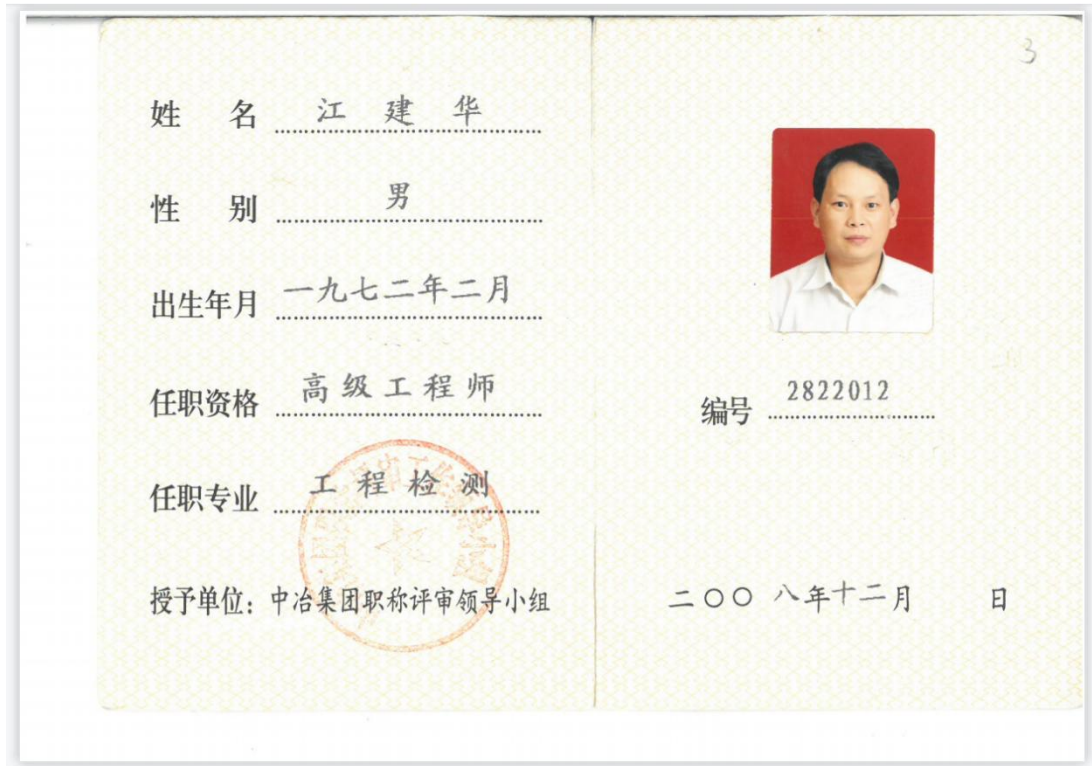 姓名 江建华
性别 男
出生年月 一九七二年二月
任职资格 高级工程师
任职专业 工程检测
授予单位：中冶集团职称评审领导小组
3
编号 2822012
二〇〇八年十二月 日